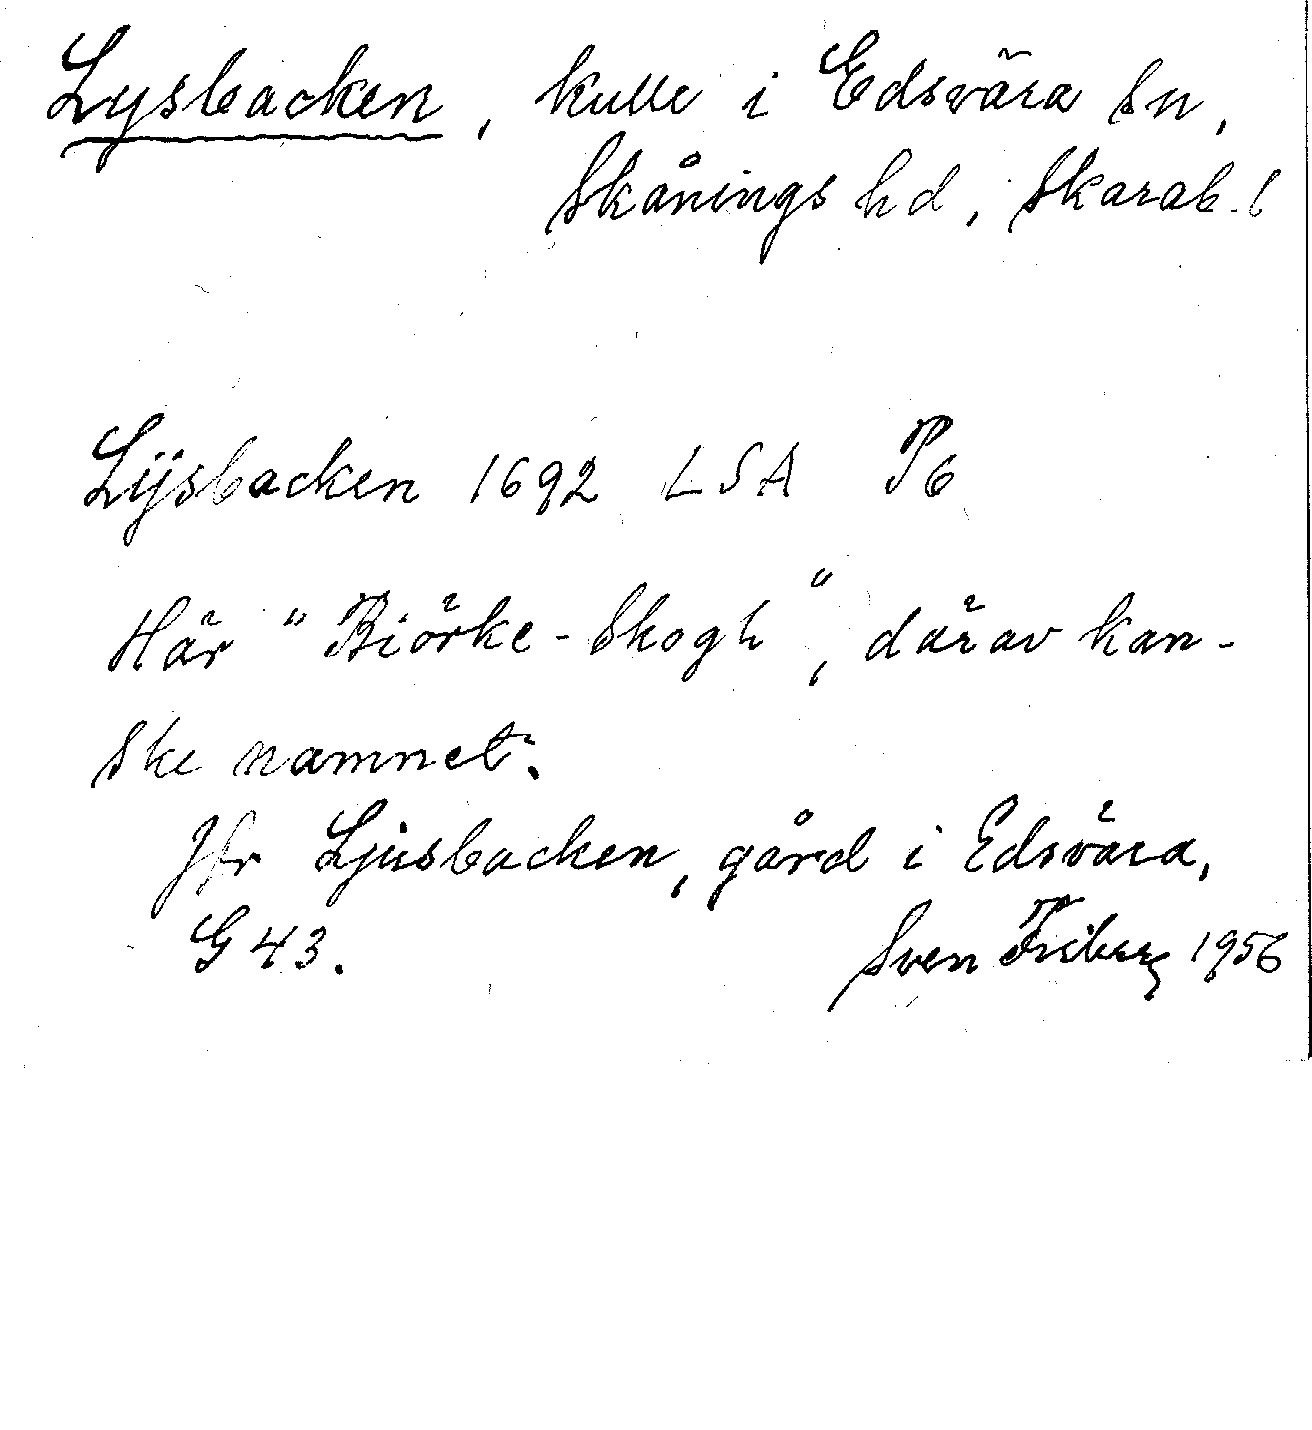 Lysbacken, kulle i Edsvära sn,
Skånings hd, Skarab. l
Lÿsbacken 1692 LSA P6
Här "Biörke-Skogh", därav kan-
ske namnet.
Jfr Ljusbacken, gård i Edsvära,
G 43.
Sven Friberg 1956